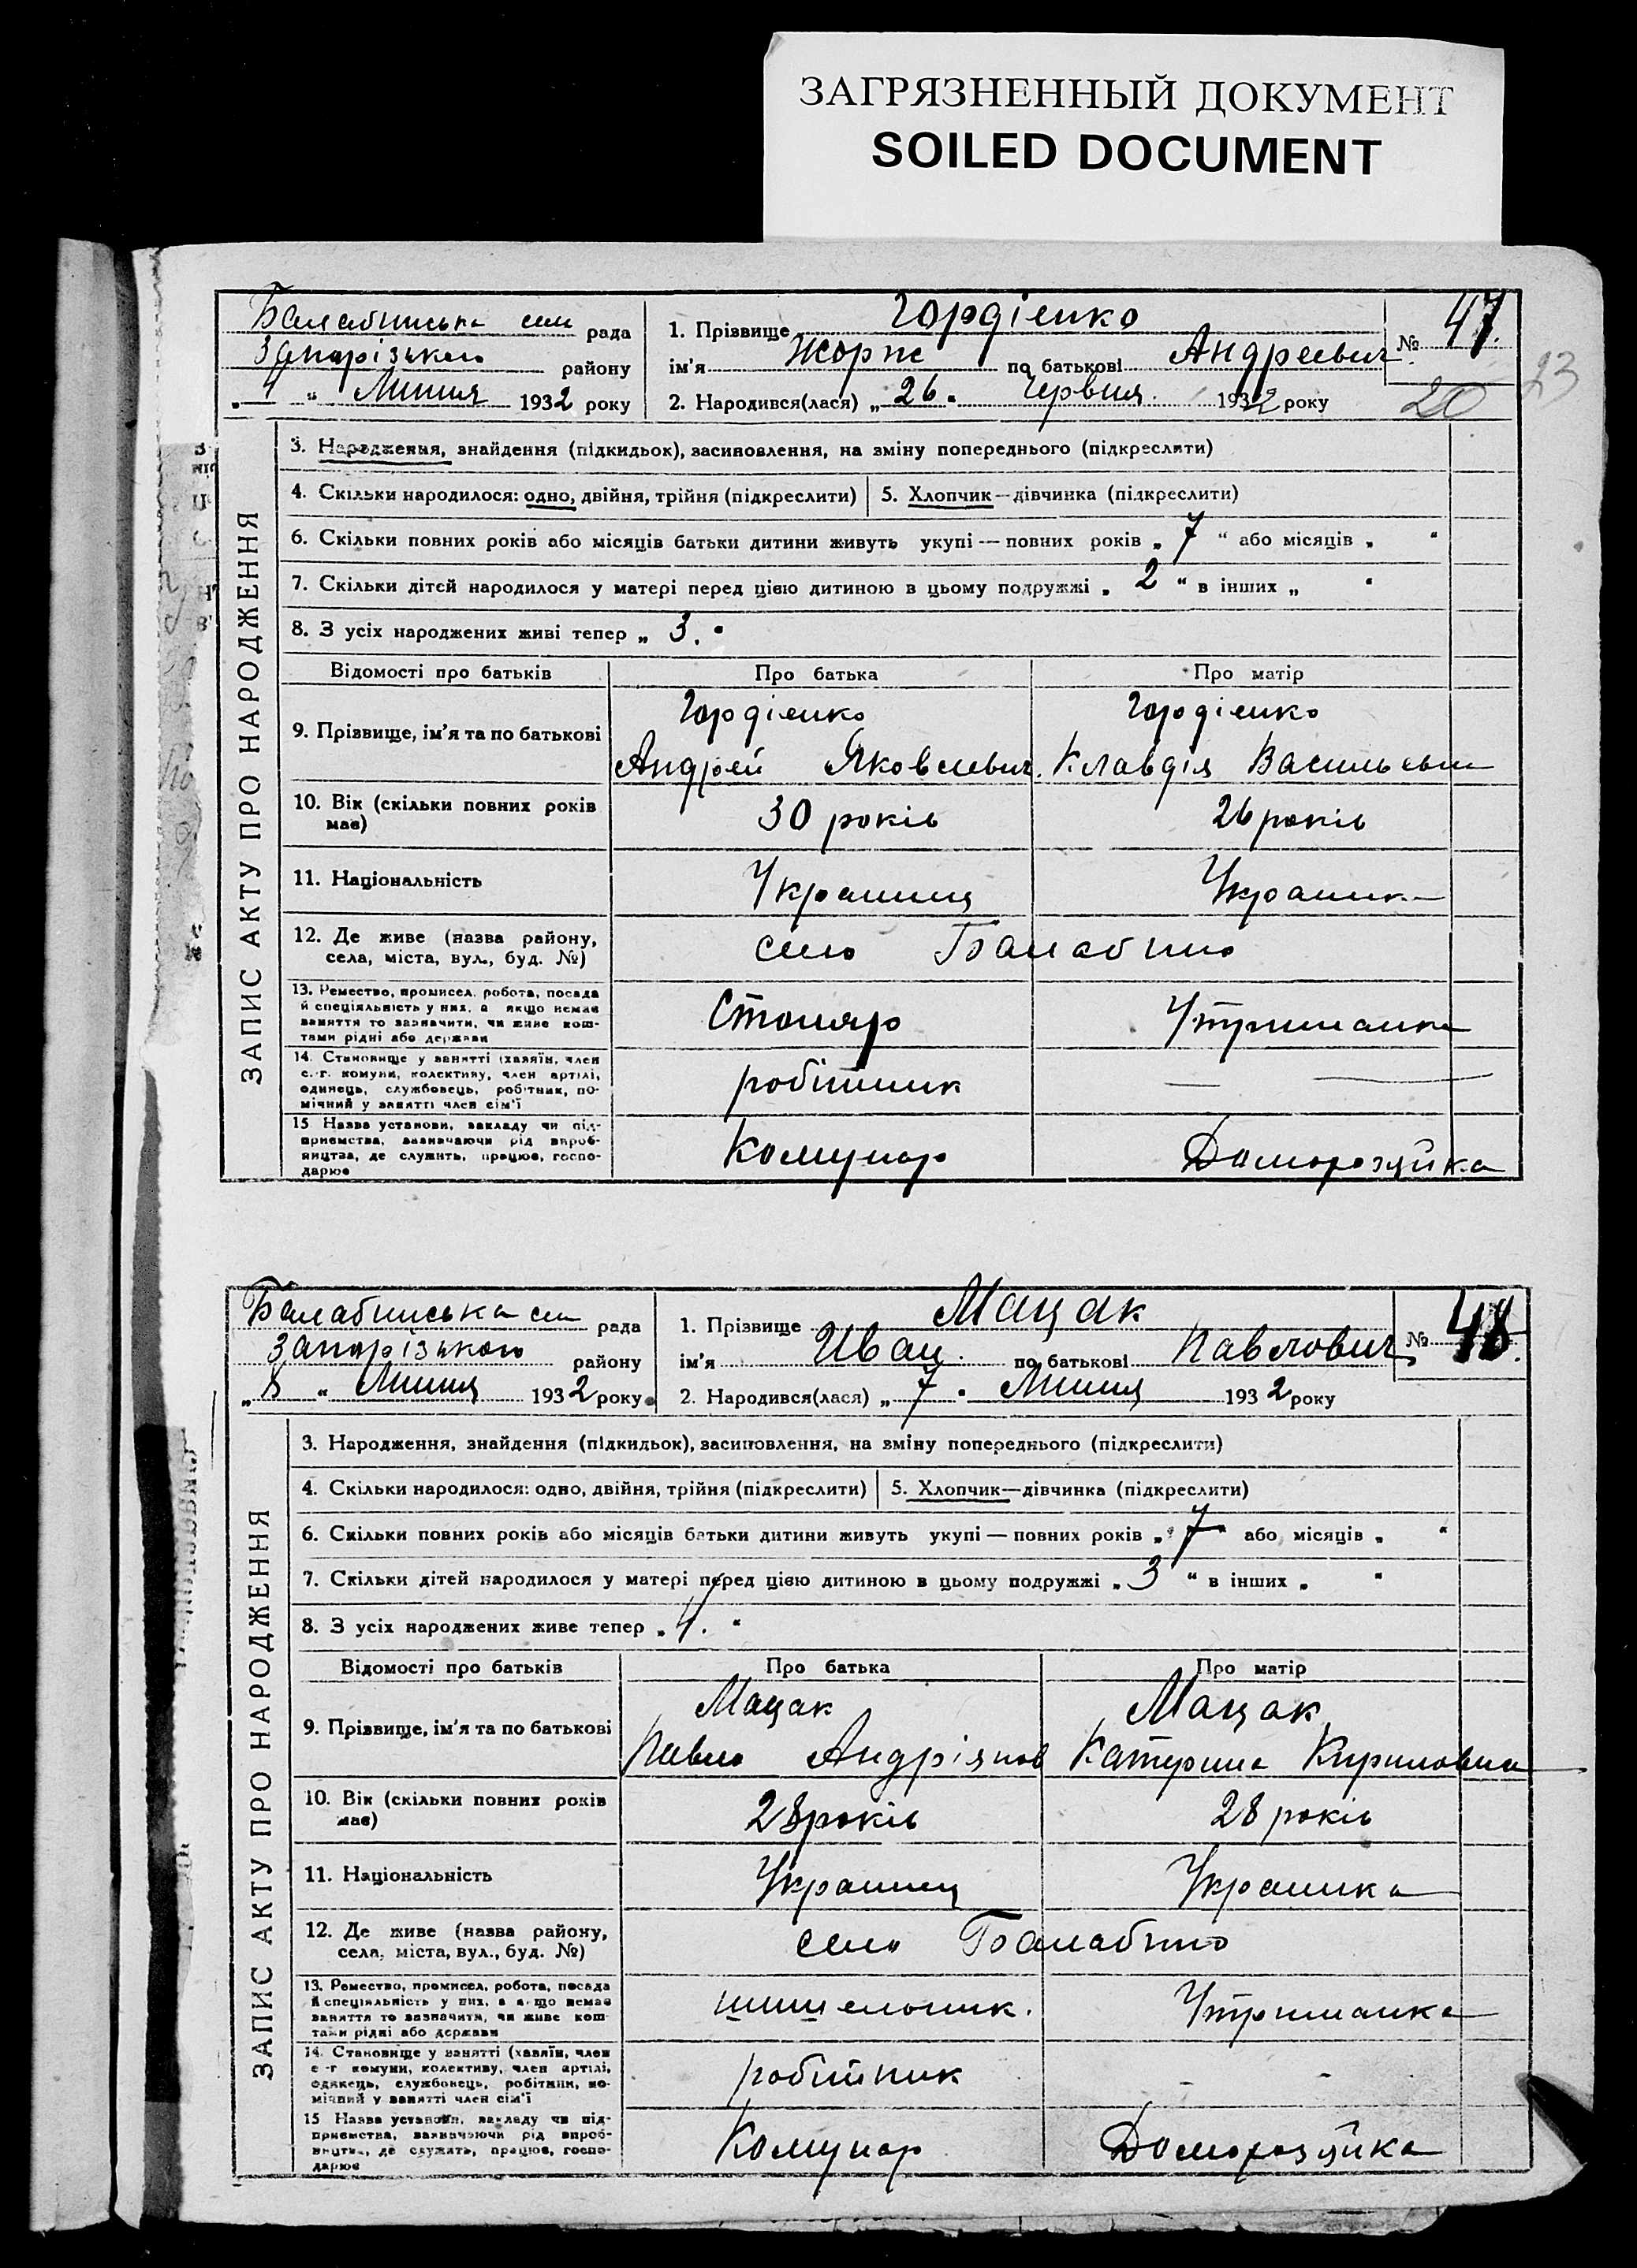 ЗАГРЯЗНЕННЫЙ ДОКУМЕНТ
SOILED DOCUMENT
Балабинська сел рада
Запорізького району
„1“ Липня 1932 року
1. Прізвище Гордіенко
ім'я Жорж по батькові Андреевич
2. Народився(лася) „26“ Червня 1932 року
№ 47.
20
23
ЗАПИС АКТУ ПРО НАРОДЖЕННЯ
3. Народження, знайдення (підкидьок), засиновлення, на зміну попереднього (підкреслити)
4. Скільки народилося: одно, двійня, трійня (підкреслити) 5. Хлопчик—дівчинка (підкреслити)
6. Скільки повних років або місяців батьки дитини живуть укупі — повних років „7“ або місяців „ “
7. Скільки дітей народилося у матері перед цією дитиною в цьому подружжі „2“ в інших „ “
8. З усіх народжених живі тепер „3.“
Відомості про батьків Про батька Про матір
9. Прізвище, ім'я та по батькові
Гордіенко Гордіенко
Андрей Яковлевич. Клавдія Васильевна
10. Вік (скільки повних років має) 30 років 26 років
11. Національність Украинец Украинка
12. Де живе (назва району,
села, міста, вул., буд. №)
село Балабино
13. Ремество, промисел, робота, посада
й спеціяльність у них, а якщо немає
заняття то зазначити, чи живе кош-
тами рідні або держави
Столяр Утриманка
14. Становище у занятті (хазяїн, член
с.-г. комуни, колективу, член артілі,
одинець, службовець, робітник, по-
мічний у занятті член сім'ї
робітник — —
15 Назва установи, закладу чи під-
приємства, зазначаючи рід вироб-
ництва, де служить, працює, госпо-
дарює
Комунар Доморозяйка
Балабинська сел рада
Запорізького району
„8“ Липня 1932 року
1. Прізвище Мацак
ім'я Иван по батькові Павлович
2. Народився(лася) „7“ Липня 1932 року
№ 48.
ЗАПИС АКТУ ПРО НАРОДЖЕННЯ
3. Народження, знайдення (підкидьок), засиновлення, на зміну попереднього (підкреслити)
4. Скільки народилося: одно, двійня, трійня (підкреслити) 5. Хлопчик—дівчинка (підкреслити)
6. Скільки повних років або місяців батьки дитини живуть укупі — повних років „7“ або місяців „ “
7. Скільки дітей народилося у матері перед цією дитиною в цьому подружжі „3“ в інших „ “
8. З усіх народжених живе тепер „4.“
Відомості про батьків Про батька Про матір
9. Прізвище, ім'я та по батькові
Мацак Мацак
Павло Андріянов Катерина Кириловна
10. Вік (скільки повних років має) 28 років 28 років
11. Національність Украинец Украинка
12. Де живе (назва району,
села, міста, вул., буд. №)
село Балабино
13. Ремество, промисел, робота, посада
й спеціяльність у них, а якщо немає
заняття то зазначити, чи живе кош-
тами рідні або держави
Утриманка
14. Становище у занятті (хазяїн, член
с.-г. комуни, колективу, член артілі,
одинець, службовець, робітник, по-
мічний у занятті член сім'ї
робітник - -
15 Назва установи, закладу чи під-
приємства, зазначаючи рід вироб-
ництва, де служить, працює, госпо-
дарює
Комунар Доморозяйка